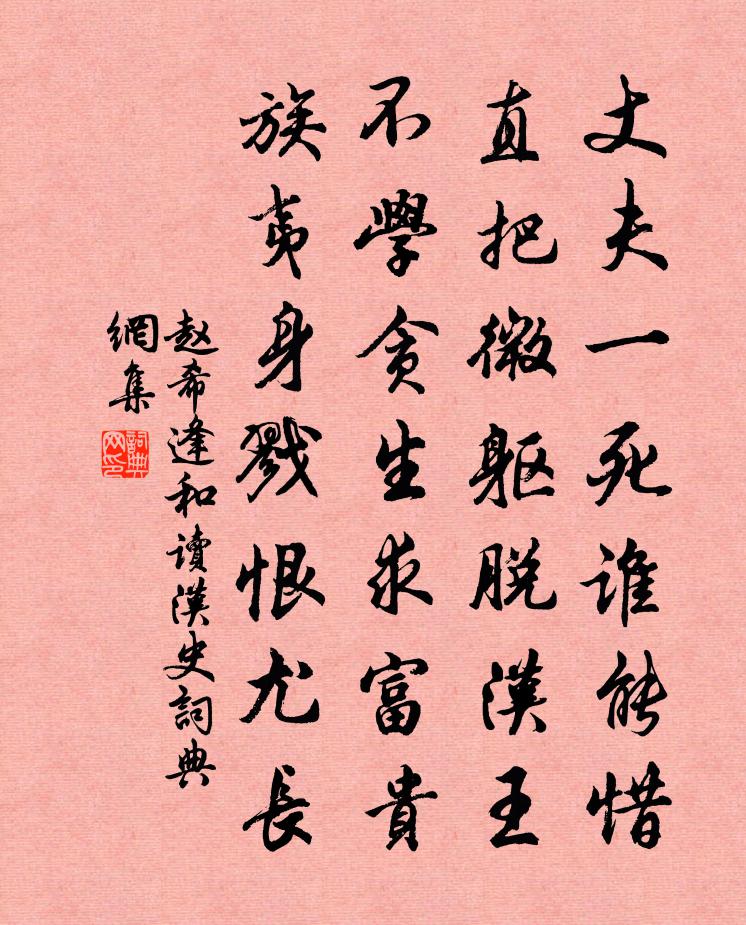 丈夫一死誰能惜
直把微軀脫漢王
不學貪生求富貴
族夷身戮恨尤長
赵希逢和讀漢史詞典
網集
詞典網印